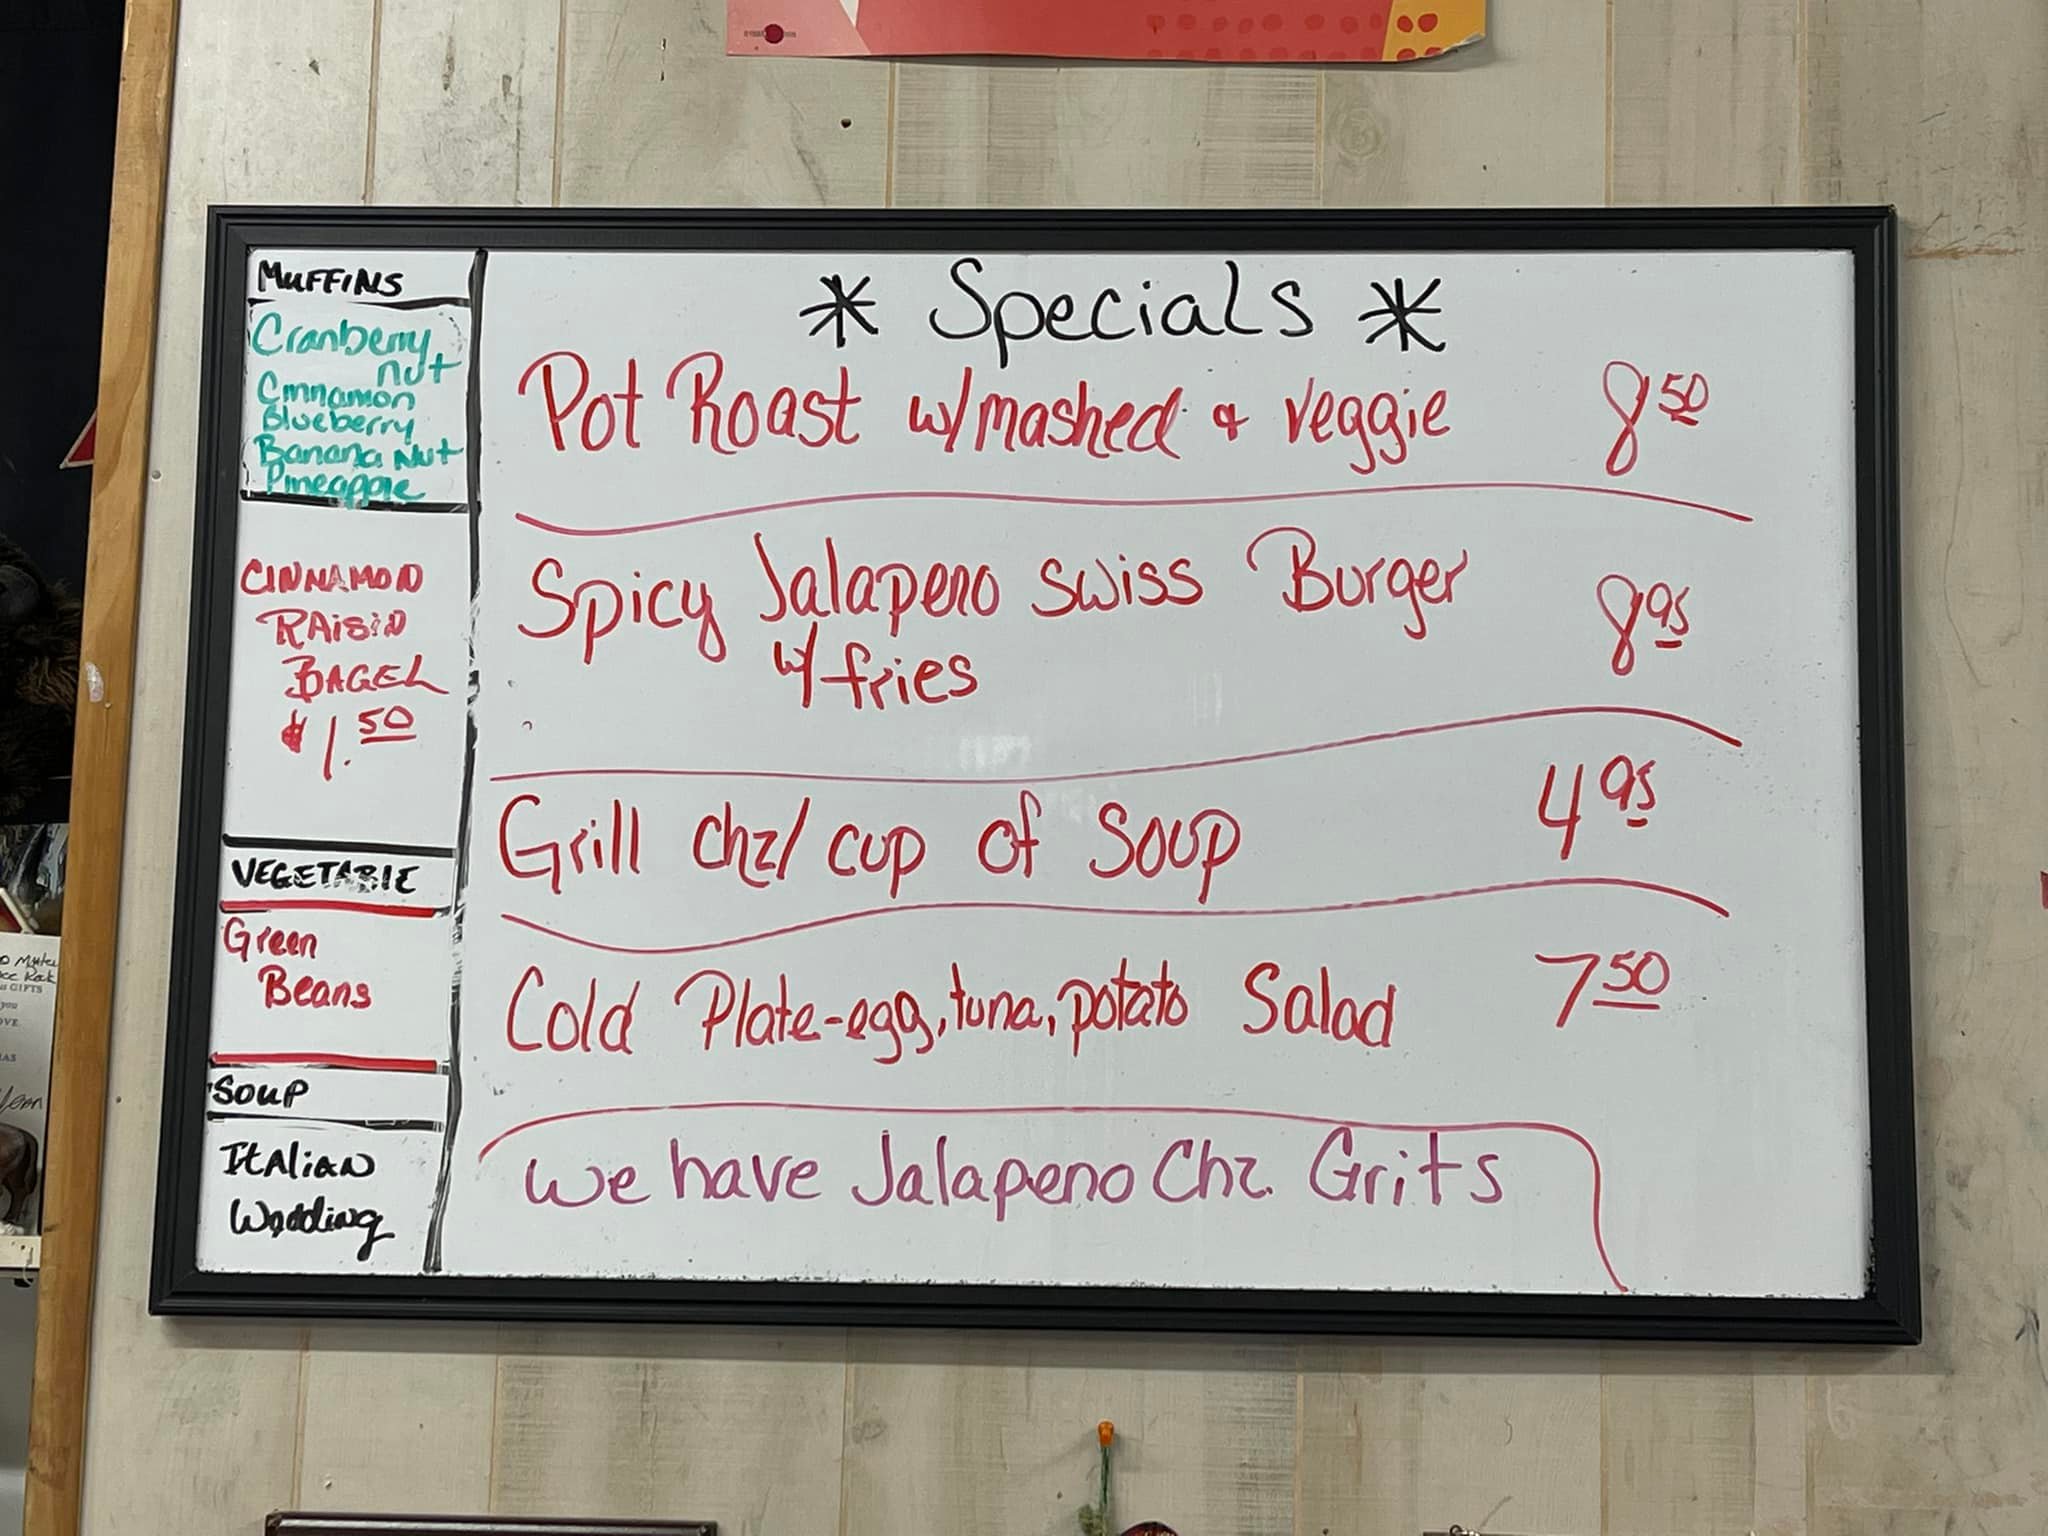 MUFFINS
Cranberry
nut
Cinnamon
Blueberry
Banana Nut
Pineapple
CINNAMON
RAISIN
BAGEL
$1.50
VEGETABLE
Green
Beans
SOUP
Italian
Wedding
* Specials *
Pot Roast w/mashed & veggie 8 50
Spicy Jalapeno swiss Burger 8 95
w/ fries
Grill chz/ cup of soup 4 95
Cold Plate-egg, tuna, potato Salad 7 50
we have Jalapeno Chz. Grits
GIFTS
you